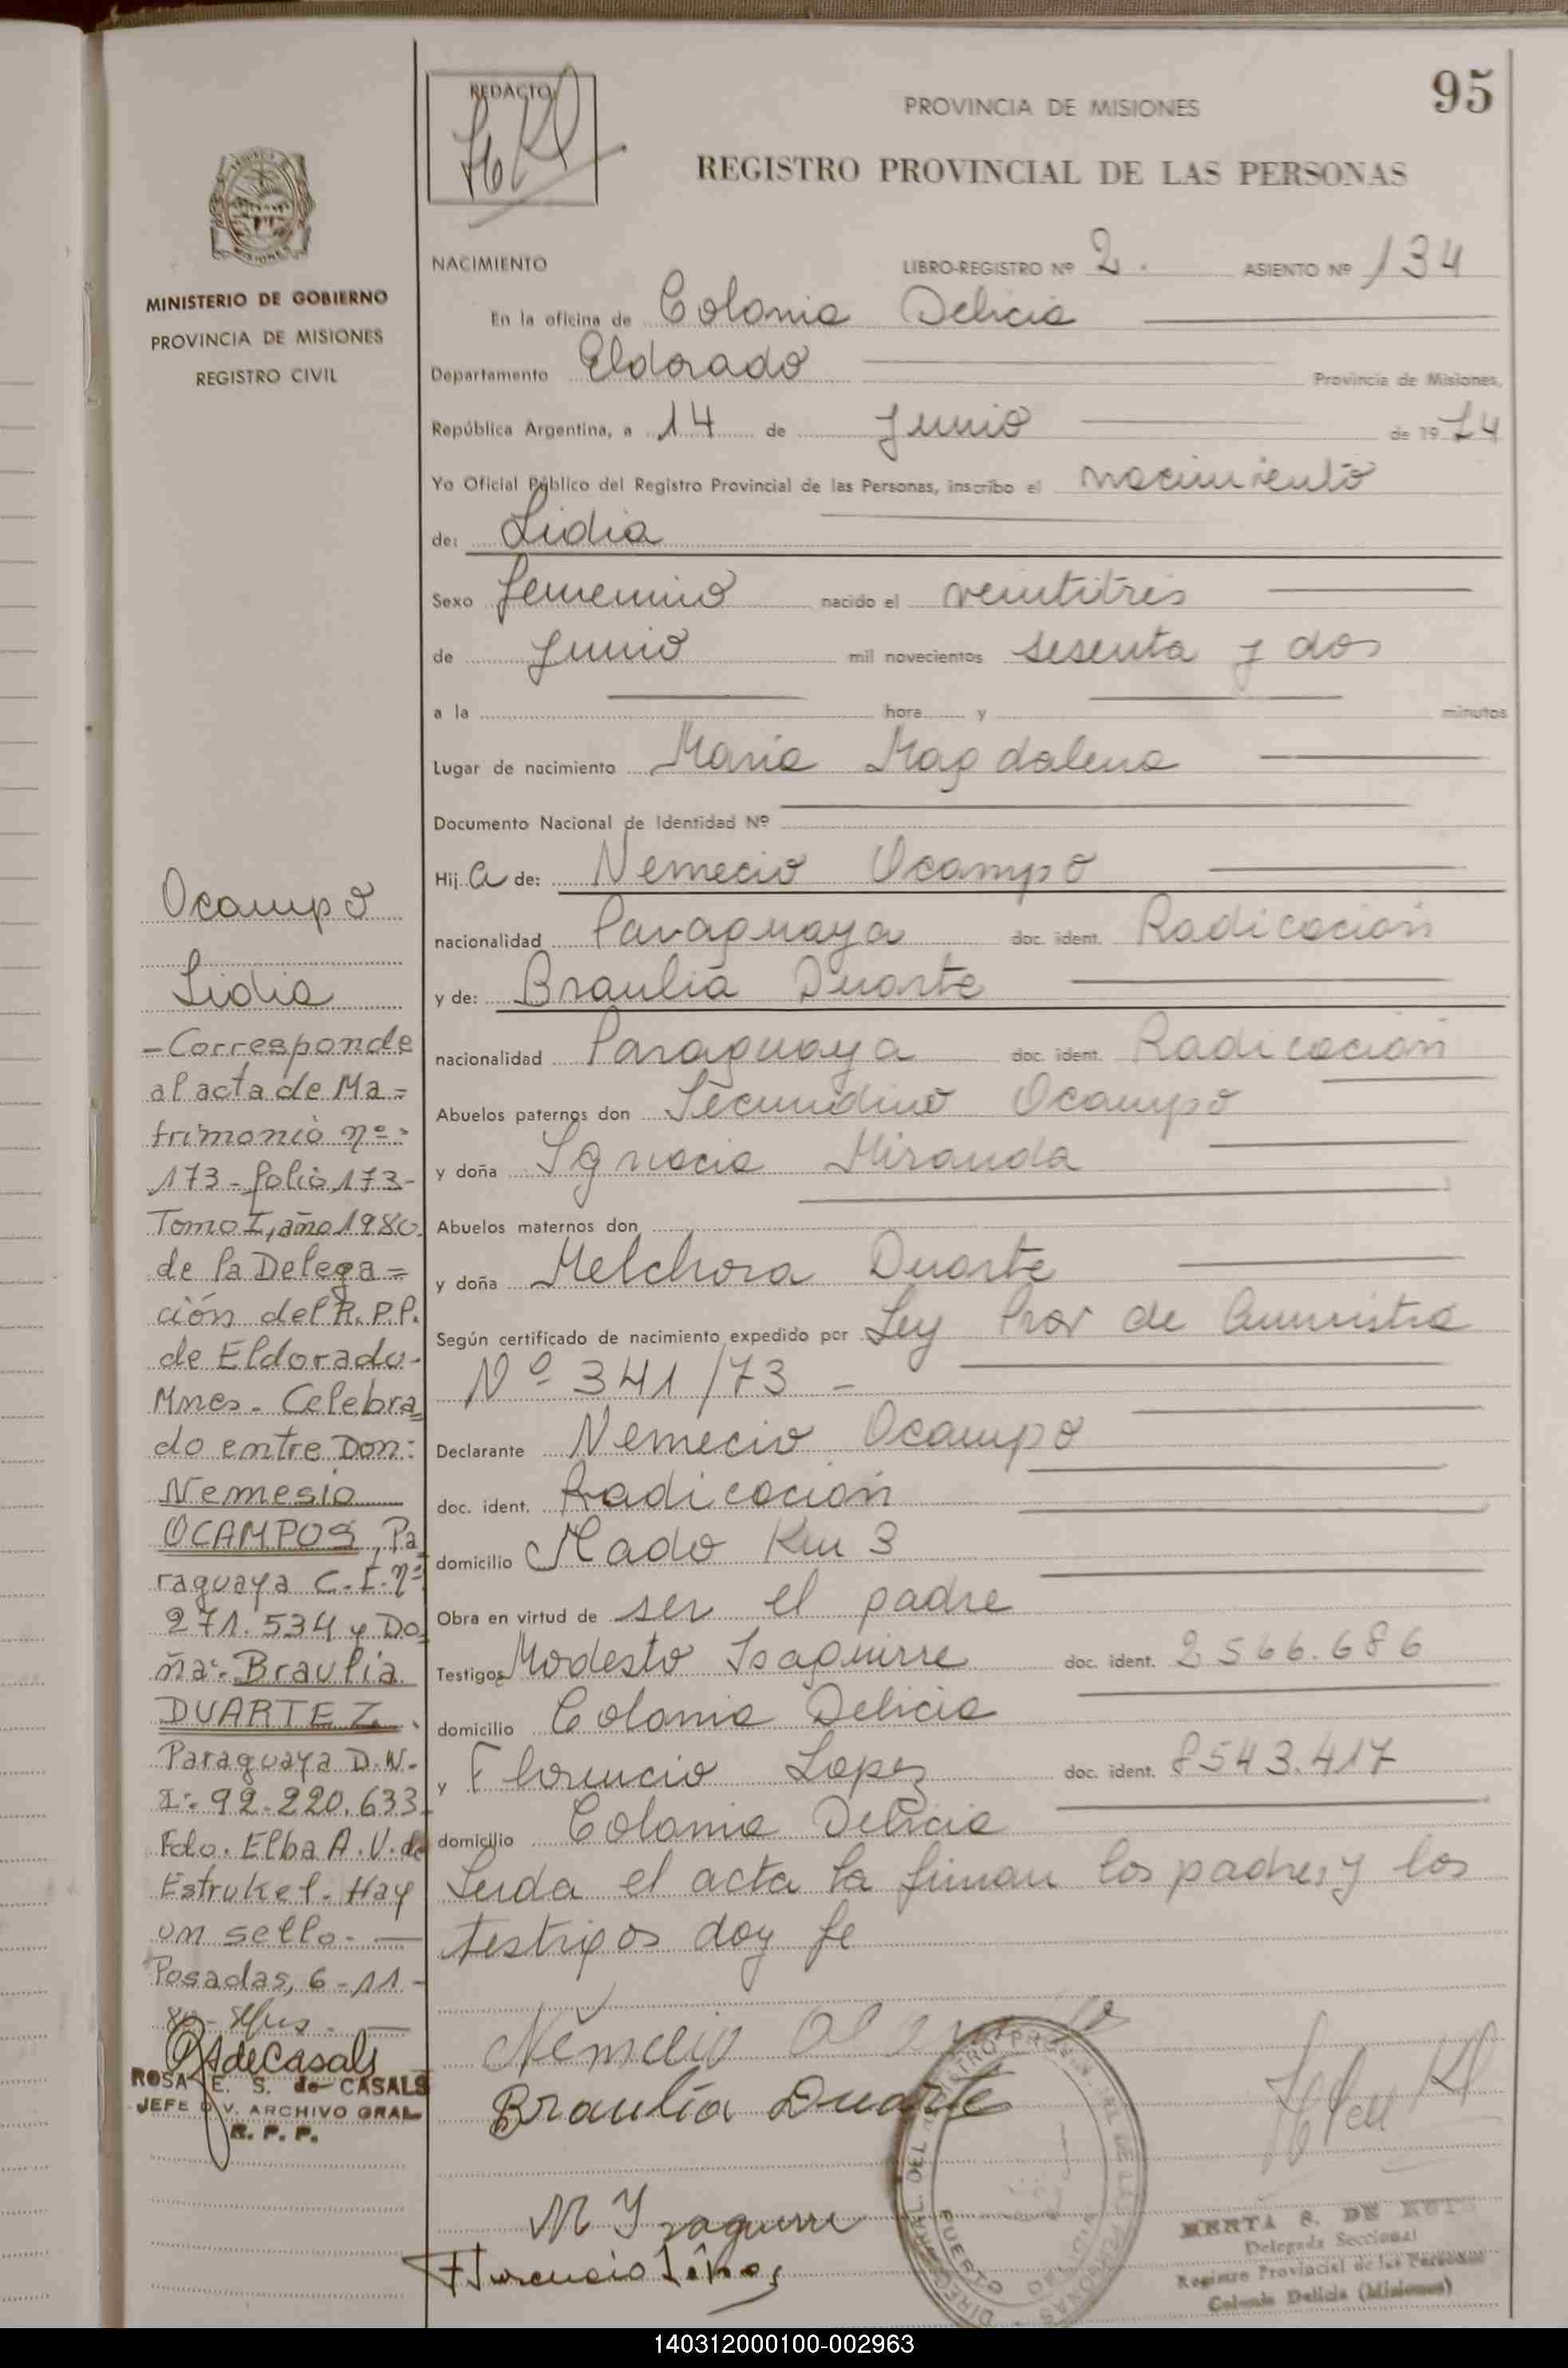 95
REDACTO
PROVINCIA DE MISIONES
REGISTRO PROVINCIAL DE LAS PERSONAS
MISIONES
MINISTERIO DE GOBIERNO
PROVINCIA DE MISIONES
REGISTRO CIVIL
NACIMIENTO LIBRO-REGISTRO Nº 2. ASIENTO Nº 134
En la oficina de Colonia Delicia
Departamento Eldorado Provincia de Misiones,
República Argentina, a 14 de Junio de 1974
Yo Oficial Público del Registro Provincial de las Personas, inscribo el nacimiento
de: Lidia
Sexo femenino nacido el veintitrés
de Junio mil novecientos sesenta y dos
a la hora y minutos
Lugar de nacimiento María Magdalena
Documento Nacional de Identidad Nº
Hij a de: Nemecio Ocampo
nacionalidad Paraguaya doc. ident. Radicación
y de: Braulia Duarte
nacionalidad Paraguaya doc. ident. Radicación
Abuelos paternos don Secundino Ocampo
y doña Ignacia Miranda
Abuelos maternos don
y doña Melchora Duarte
Según certificado de nacimiento expedido por Ley Prov de Amnistia
Nº 341/73 -
Declarante Nemecio Ocampo
doc. ident. Radicación
domicilio Mado Km 3
Obra en virtud de ser el padre
Testigos Modesto Isaguirre doc. ident. 2566.686
domicilio Colonia Delicia
y Florencio Lopez doc. ident. 8543.417
domicilio Colonia Delicia
Leida el acta la firman los padres y los
testigos doy fe
Ocampo
Lidia
- Corresponde
al acta de Ma=
trimonio nº:
173 - folio 173-
Tomo I, año 1980.
de la Delega=
ción del R.P.P.
de Eldorado-
Mnes. Celebra=
do entre Don:
Nemesio
OCAMPOS, Pa
raguaya C.I. nº
271.534 y Do=
ña: Braulia
DUARTEZ.
Paraguaya D.N.
I: 92.220.633
Fdo. Elba A. V. de
Estrukel. Hay
un sello. —
Posadas, 6-11-
80-
RSdeCasals
ROSA E. S. de CASALS
JEFE DIV. ARCHIVO GRAL
R. P. P.
Nemecio
Braulia Duarte
M Isaguirre
Florencio López
PUERTO
Delegada Seccional
Registro Provincial de las Personas
Colonia Delicia (Misiones)
140312000100-002963